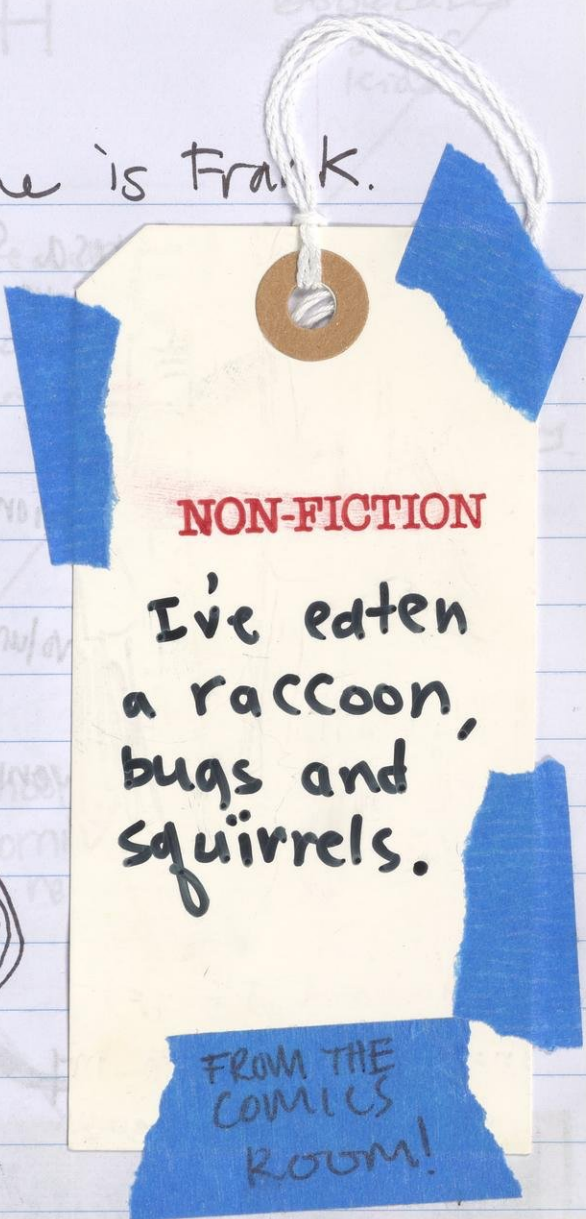 is Frank.
NON-FICTION
I've eaten
a raccoon,
bugs and
squirrels.
FROM THE
COMICS
ROOM!